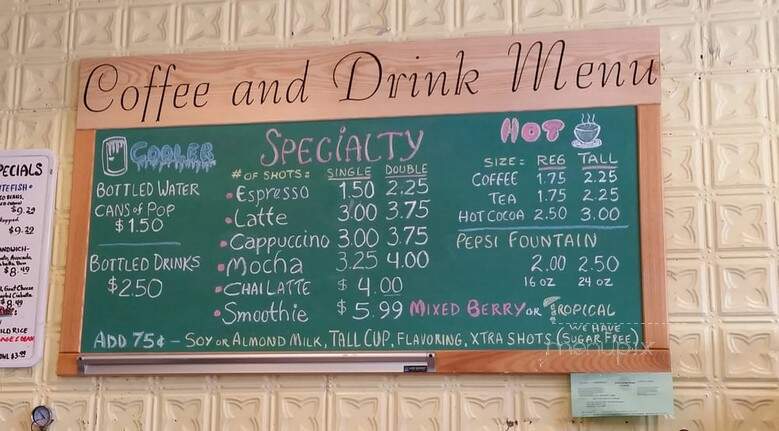 Coffee and Drink Menu
COOLER
BOTTLED WATER
CANS of POP
$1.50
BOTTLED DRINKS
$2.50
SPECIALTY
# OF SHOTS: SINGLE DOUBLE
• Espresso 1.50 2.25
• Latte 3.00 3.75
• Cappuccino 3.00 3.75
• Mocha 3.25 4.00
• CHAI LATTE $4.00
• Smoothie $5.99 MIXED BERRY OR TROPICAL
HOT
SIZE: REG TALL
COFFEE 1.75 2.25
TEA 1.75 2.25
HOT COCOA 2.50 3.00
PEPSI FOUNTAIN
2.00 2.50
16 OZ 24 OZ
WE HAVE
ADD 75¢ – SOY OR ALMOND MILK, TALL CUP, FLAVORING, XTRA SHOTS (SUGAR FREE)
menupix
PECIALS
TEFISH
$9.29
$9.29
NDWICH
$8.49
Goat Cheese
Ciabatta
$8.49
ILD RICE
$3.99